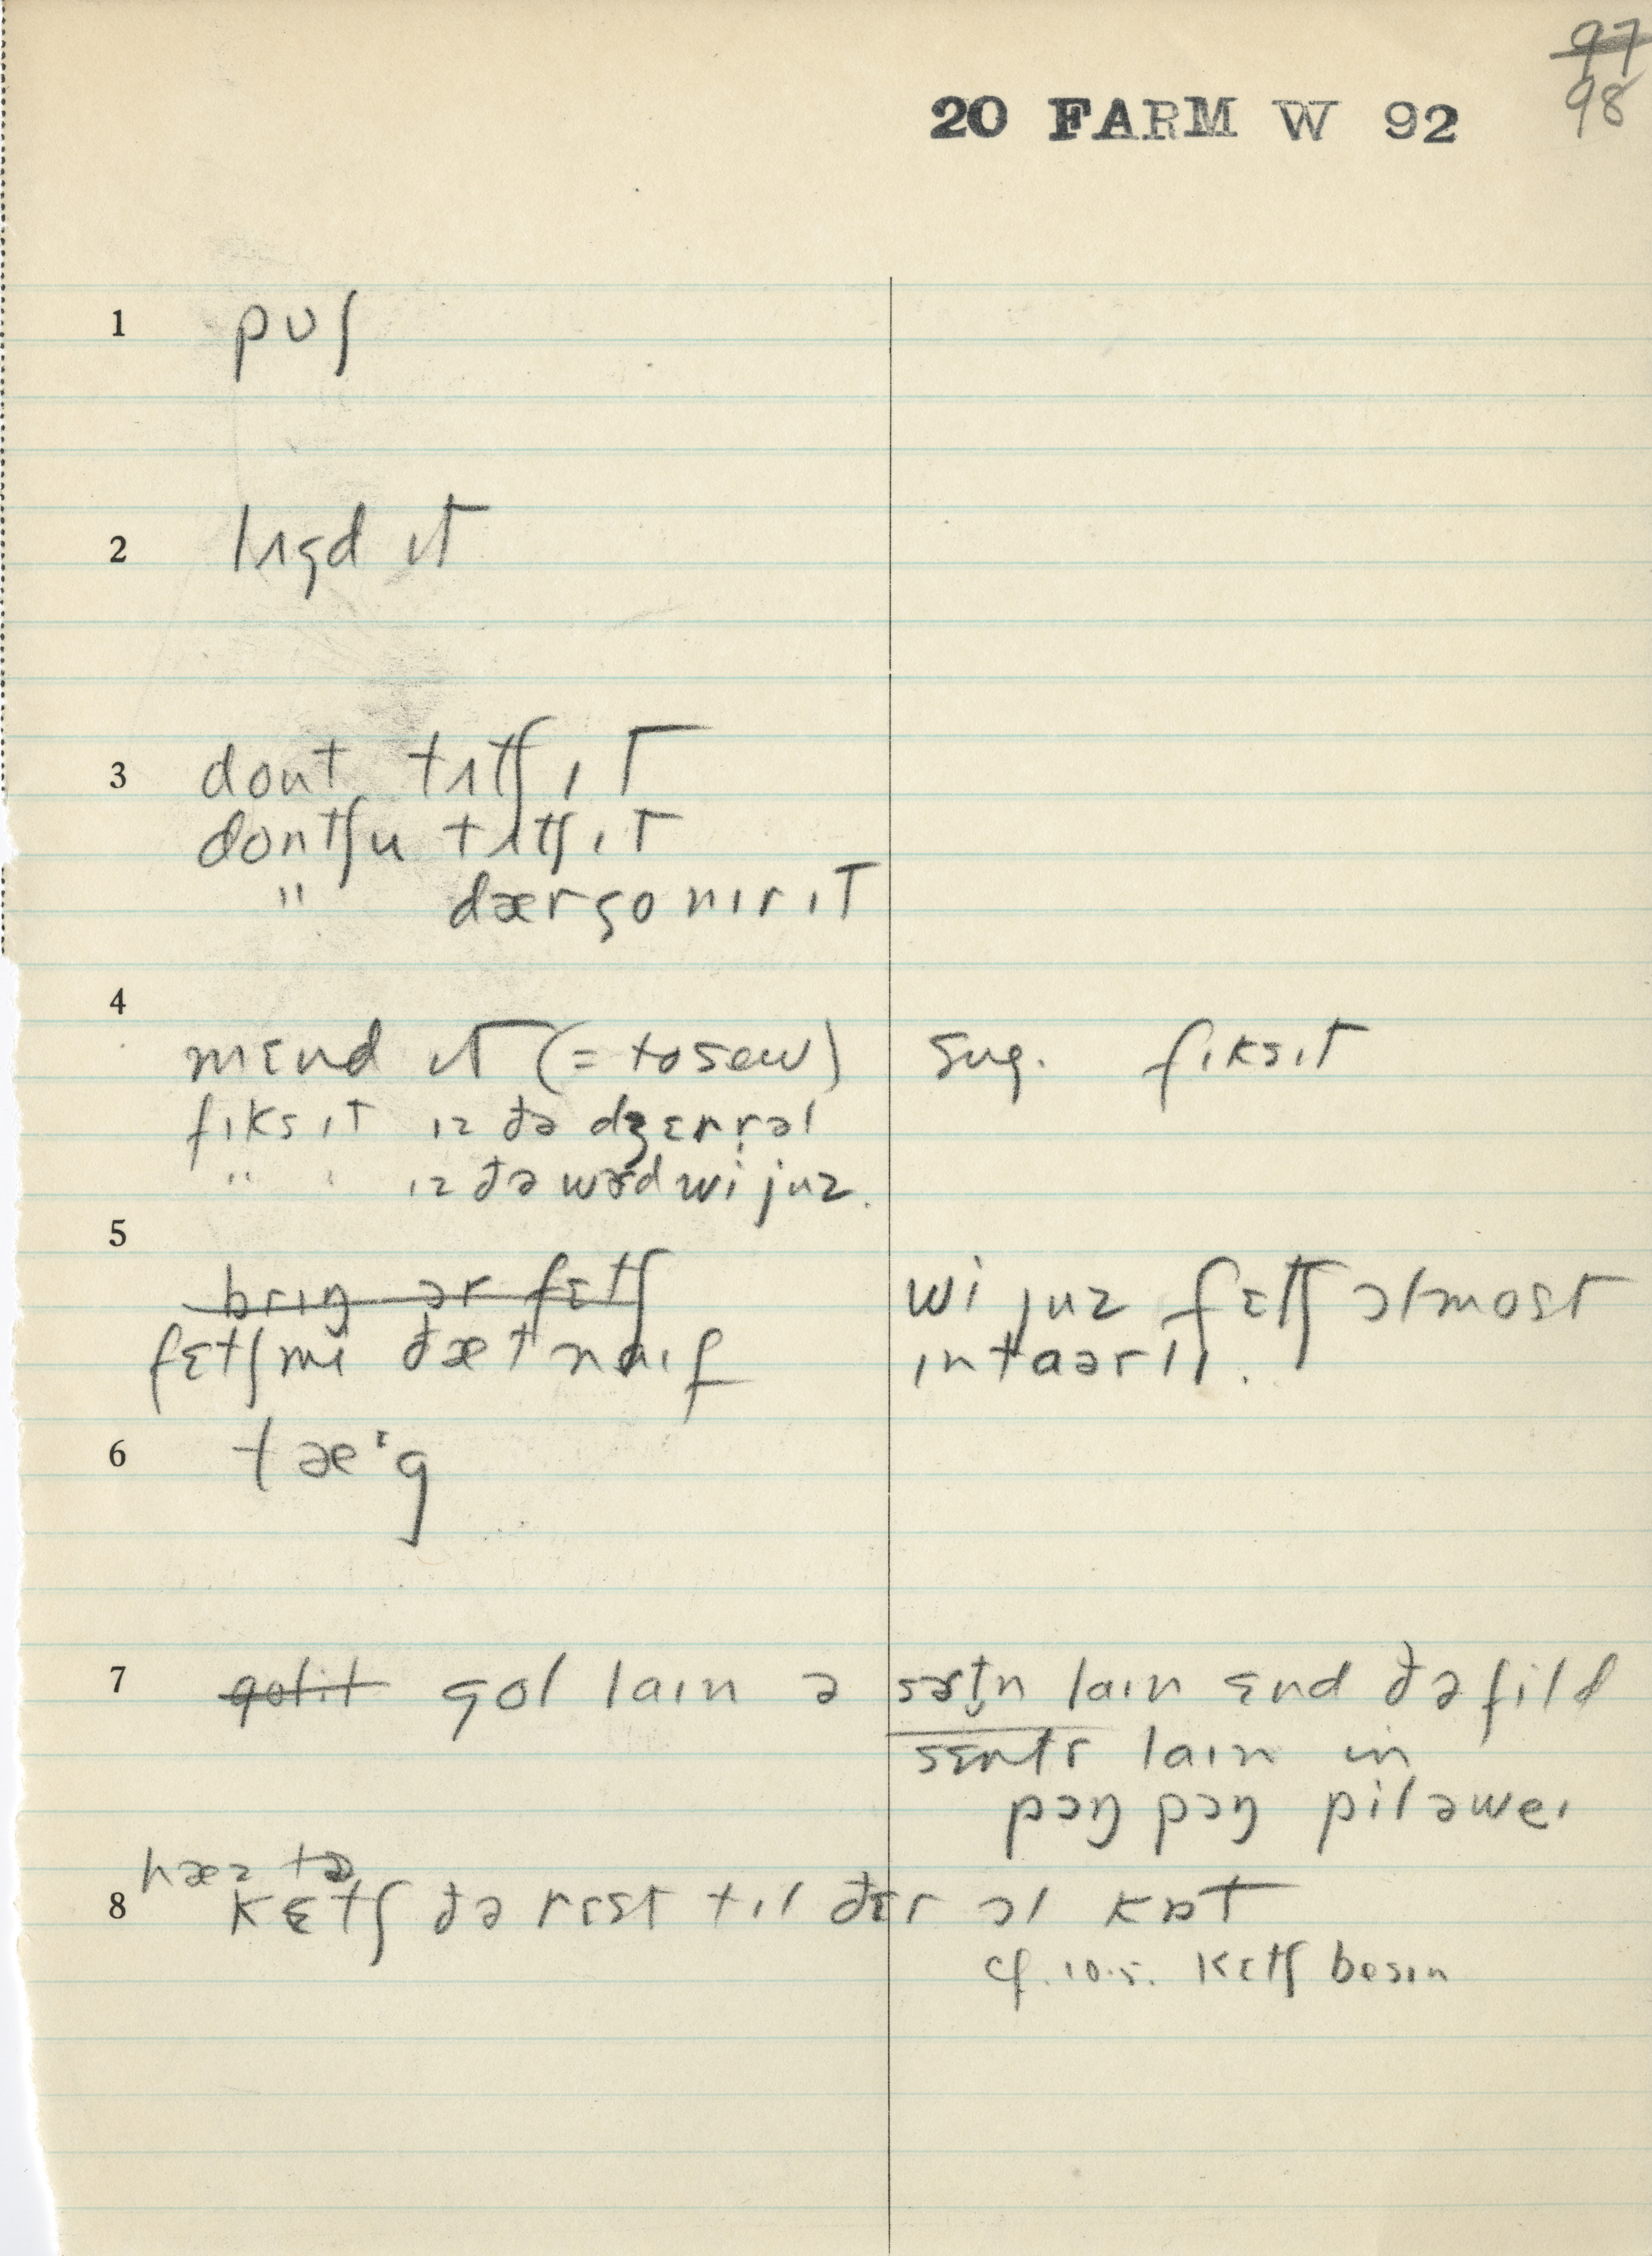 ~~97~~
98
20 FARM W 92
1 pʊʃ
2 lʌgd ɪt
3 dont tʌtʃ ɪt
dontʃu tʌtʃ ɪt
" dærgo nɪr ɪt
4
mɛnd ɪt (= to sew) sug. fɪks ɪt
fɪks ɪt ɪz ðə dʒɛnrəl
" " ɪz ðə wɚd wi juz.
5
~~brɪŋ ər fɛtʃ~~ wi juz fɛtʃ ɔlmost
fɛtʃ mi ðæt naɪf ɪntaərli.
6 tæɪg
7 ~~golit~~ gol laɪn ə sɚtn laɪn ɛnd ðə fild
sɛntr laɪn in
pɔŋ pɔŋ pɪl əweɪ
hæz tə
8 kɛtʃ ðə rɛst tɪl ðɛr ɔl kɒt
cf. 10.5. kɛtʃ besɪn